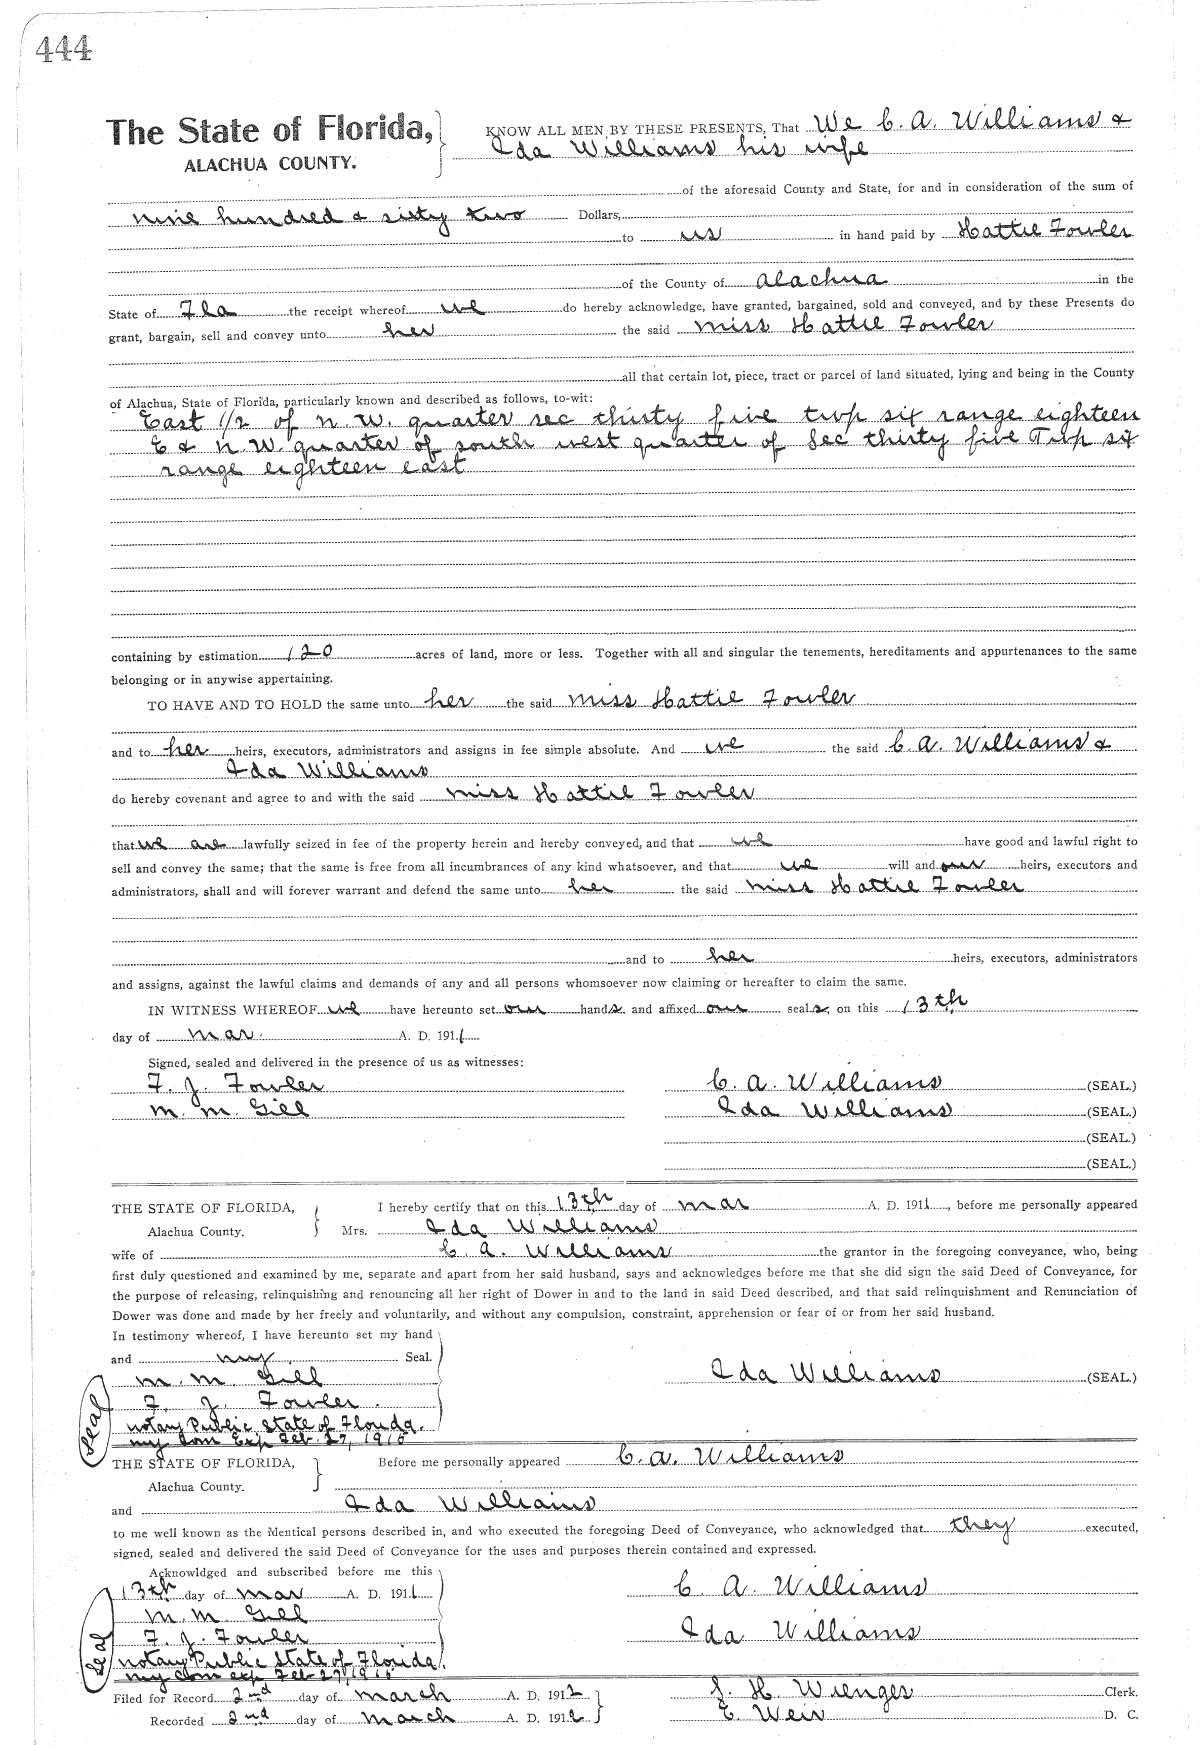 444
The State of Florida,
ALACHUA COUNTY.
KNOW ALL MEN BY THESE PRESENTS, That We C. A. Williams &
Ida Williams his wife
of the aforesaid County and State, for and in consideration of the sum of
nine hundred & sixty two Dollars,
to us in hand paid by Hattie Fowler
of the County of Alachua in the
State of Fla the receipt whereof we do hereby acknowledge, have granted, bargained, sold and conveyed, and by these Presents do
grant, bargain, sell and convey unto her the said Miss Hattie Fowler
all that certain lot, piece, tract or parcel of land situated, lying and being in the County
of Alachua, State of Florida, particularly known and described as follows, to-wit:
East 1/2 of N. W. quarter sec thirty five twp six range eighteen
E & N. W. quarter of south west quarter of Sec thirty five Twp six
range eighteen east
containing by estimation 120 acres of land, more or less. Together with all and singular the tenements, hereditaments and appurtenances to the same
belonging or in anywise appertaining.
TO HAVE AND TO HOLD the same unto her the said Miss Hattie Fowler
and to her heirs, executors, administrators and assigns in fee simple absolute. And we the said C A. Williams &
Ida Williams
do hereby covenant and agree to and with the said Miss Hattie Fowler
that we are lawfully seized in fee of the property herein and hereby conveyed, and that we have good and lawful right to
sell and convey the same; that the same is free from all incumbrances of any kind whatsoever, and that we will and our heirs, executors and
administrators, shall and will forever warrant and defend the same unto her the said Miss Hattie Fowler
and to her heirs, executors, administrators
and assigns, against the lawful claims and demands of any and all persons whomsoever now claiming or hereafter to claim the same.
IN WITNESS WHEREOF we have hereunto set our hands and affixed our seals, on this 13th
day of Mar. A. D. 1911
Signed, sealed and delivered in the presence of us as witnesses:
F. J. Fowler C. A. Williams (SEAL.)
M. M. Gill Ida Williams (SEAL.)
(SEAL.)
(SEAL.)
THE STATE OF FLORIDA, I hereby certify that on this 13th day of Mar A. D. 1911, before me personally appeared
Alachua County. Mrs. Ida Williams
wife of C. A. Williams the grantor in the foregoing conveyance, who, being
first duly questioned and examined by me, separate and apart from her said husband, says and acknowledges before me that she did sign the said Deed of Conveyance, for
the purpose of releasing, relinquishing and renouncing all her right of Dower in and to the land in said Deed described, and that said relinquishment and Renunciation of
Dower was done and made by her freely and voluntarily, and without any compulsion, constraint, apprehension or fear of or from her said husband.
In testimony whereof, I have hereunto set my hand
and my Seal.
M. M. Gill Ida Williams (SEAL.)
F. J. Fowler.
Seal
Notary Public State of Florida.
My Com Exp Feb. 27, 1915
THE STATE OF FLORIDA, Before me personally appeared C. A. Williams
Alachua County.
and Ida Williams
to me well known as the identical persons described in, and who executed the foregoing Deed of Conveyance, who acknowledged that they executed,
signed, sealed and delivered the said Deed of Conveyance for the uses and purposes therein contained and expressed.
Acknowldged and subscribed before me this
13th day of Mar A. D. 1911 C A. Williams
M. M. Gill
F. J. Fowler Ida Williams
Seal
Notary Public State of Florida.
My Com exp Feb 27, 1915
Filed for Record 2nd day of March A. D. 1912 S. H. Wienges Clerk.
Recorded 2nd day of March A. D. 1912 E. Weir D. C.